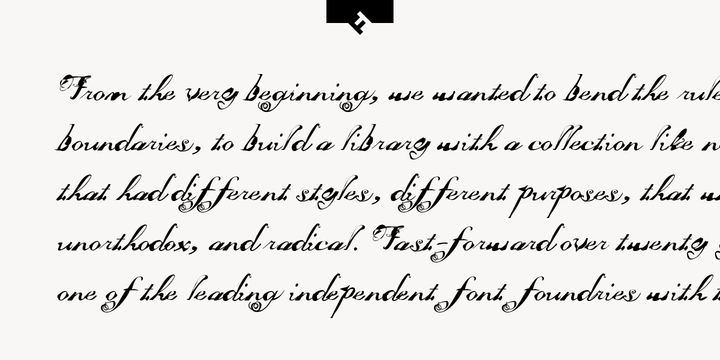 From the very beginning, we wanted to bend the rule
boundaries, to build a library with a collection like
that had different styles, different purposes, that
unorthodox, and radical. Fast-forward over twenty
one of the leading independent font foundries with